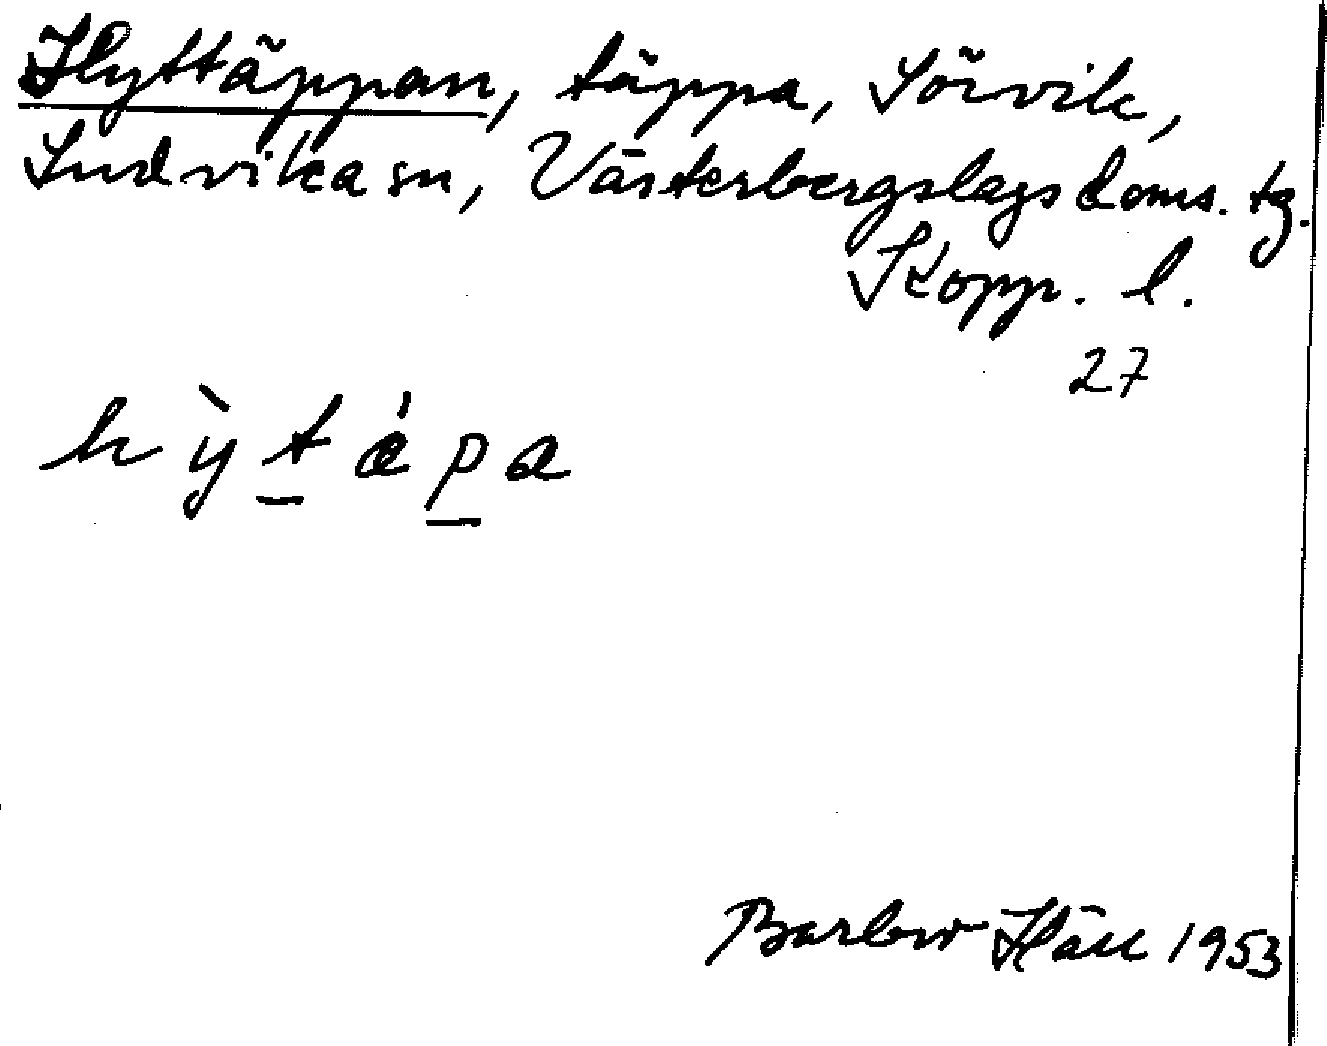 Hyttäppan, täppa, Sörvik,
Ludvika sn, Västerbergslags doms. tg.
Kopp. l.
27
hỳtǽpa
1953